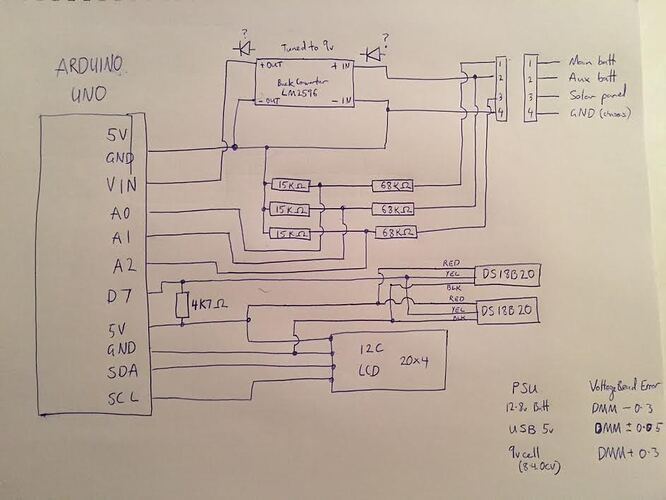 ? Tuned to 9v ?
ARDUINO
UNO
+ OUT + IN
Buck Converter
LM2596
- OUT - IN
1 1 Main batt
2 2 Aux batt
3 3 Solar panel
4 4 GND (chassis)
5V
GND
VIN
A0
A1
A2
D7
5V
GND
SDA
SCL
15KΩ 68KΩ
15KΩ 68KΩ
15KΩ 68KΩ
4K7Ω
RED
YEL
BLK
DS18B20
RED
YEL
BLK
DS18B20
I2C
LCD
20x4
PSU Voltage Read Error
12.8v Batt DMM - 0.3
USB 5v DMM ± 0.05
9v cell DMM + 0.3
(8.40v)